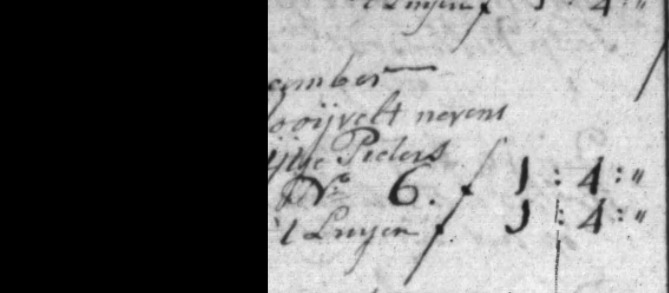 't Luijen 1 : 4 : "
ember
ooijvelt nevens
ijtje Pieters
N.º 6. 1 : 4 : "
't Luijen 1 : 4 : "